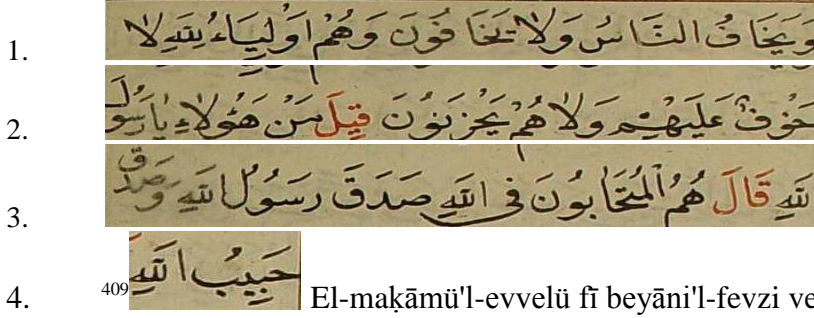 1. وَيَخَافُ النَّاسُ وَلَا يَخَافُونَ وَهُمْ اَوْلِيَاءُ لِلّٰهِ لَا
2. خَوْفٌ عَلَيْهِمْ وَلَا هُمْ يَحْزَنُونَ قِيلَ مَنْ هَٰؤُلَاءِ يَا رَسُولَ
3. للّٰهِ قَالَ هُمُ الْمُتَحَابُونَ فِى اللّٰهِ صَدَقَ رَسُولُ اللّٰهِ وَصَدَقَ
4. 409 حَبِيبُ اللّٰهِ El-maḳāmü'l-evvelü fī beyāni'l-fevzi ve